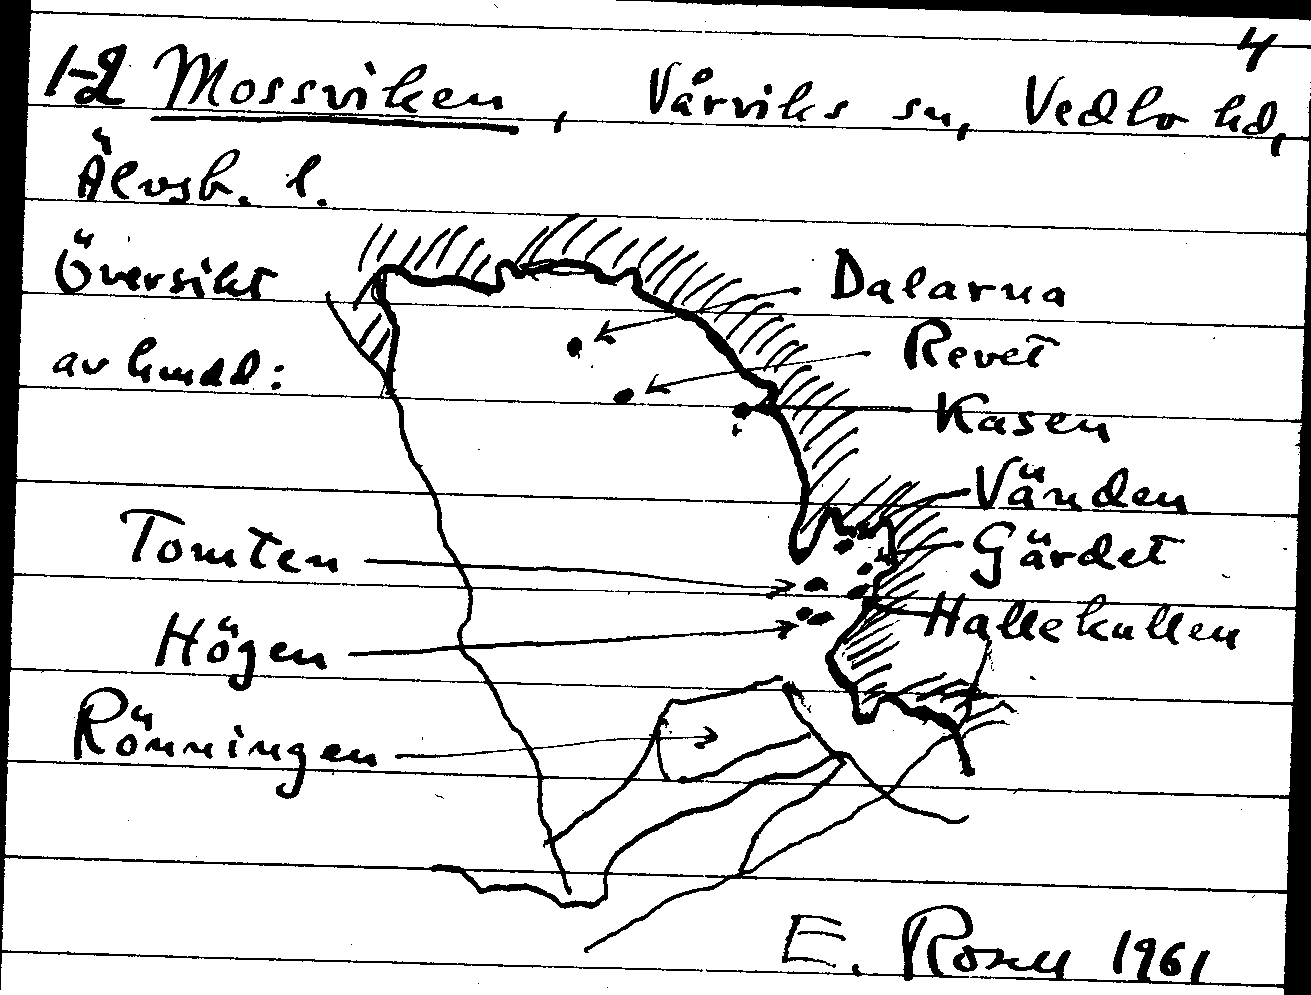 4
1-2 Mossviken, Vårviks sn, Vedbo hd,
Älvsb. l.
Översikt
av hmdd:
Dalarna
Revet
Kasen
Vänden
Gärdet
Hallekullen
Tomten
Högen
Rönningen
E. Rosell 1961